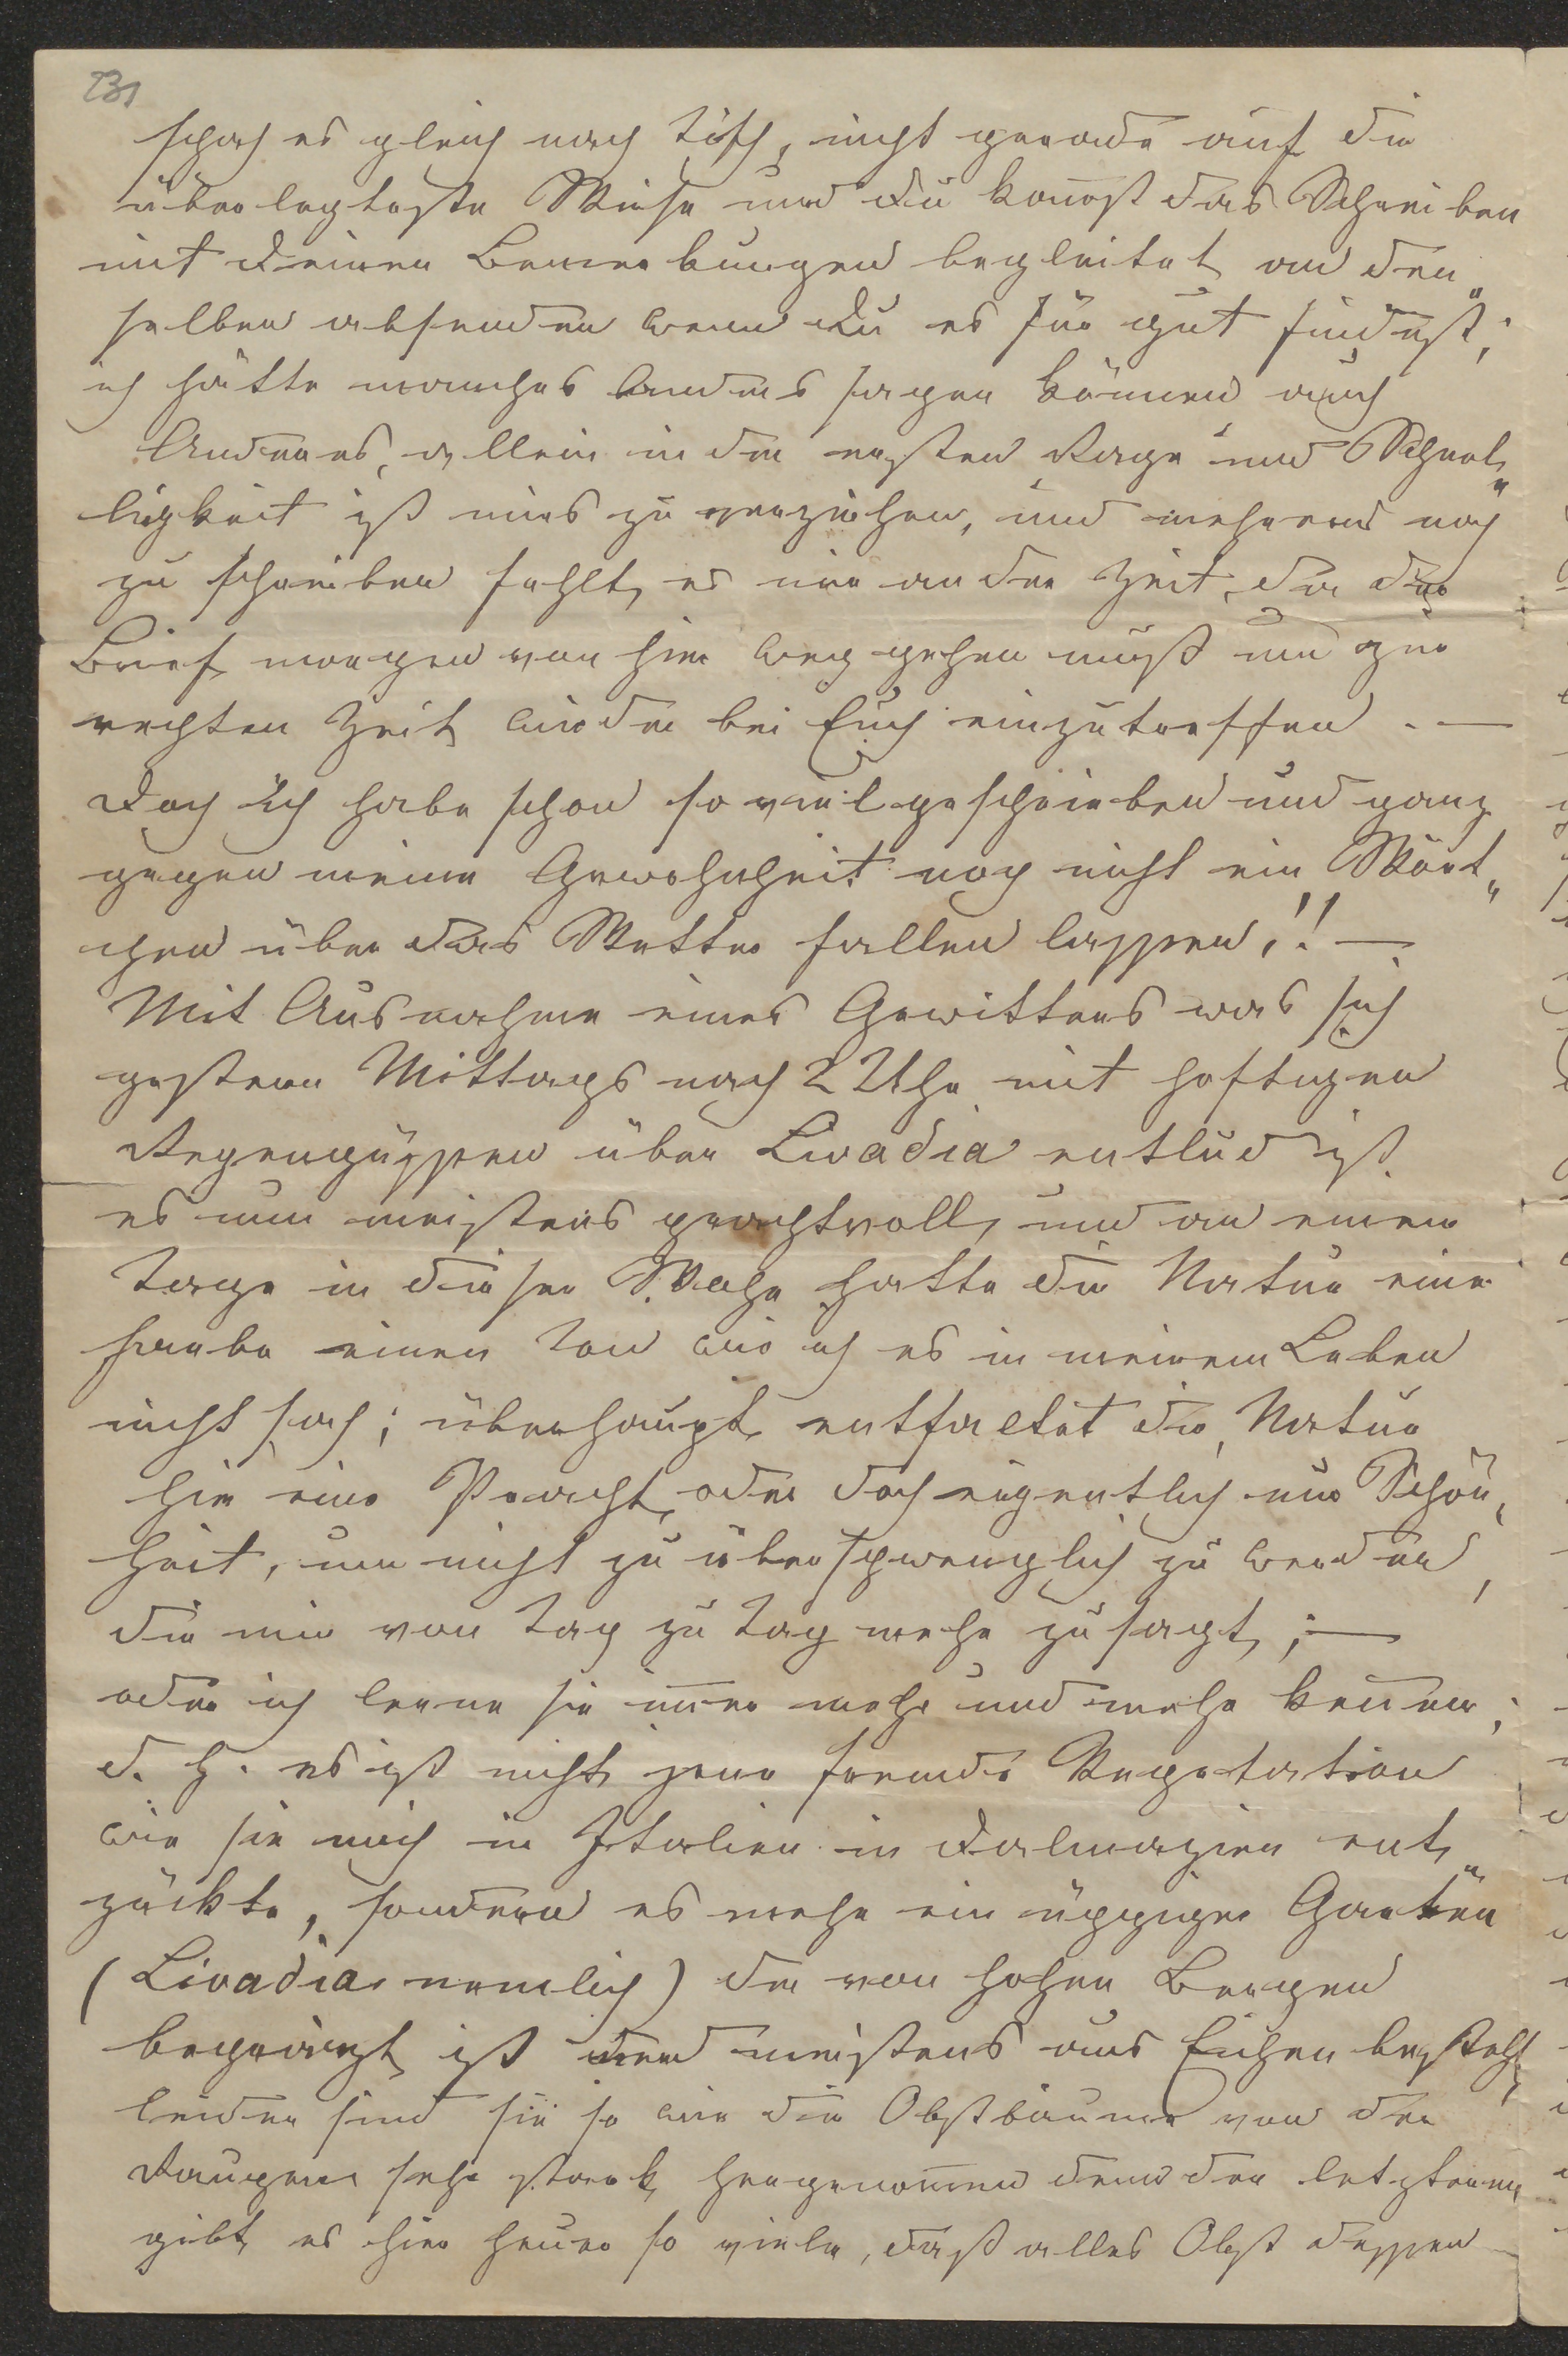 231
schah es gleich nach Tisch, nicht gerade auf die
überlegteste Weise und du kannst das Schreiben
mit deinen Bemerkungen begleitet an den„
selben absenden wenn du es für gut findest;
ich hätte manches anders sagen können auch
Anderes, allein in der ersten Rage und Schnel„
ligkeit ist mirs zu verzeihen, und mehreres noch
zu schreiben fehlt es mir an der Zeit, da der
Brief morgen von hier weg gehen muß um zur
rechten Zeit wieder bei Euch einzutreffen. —
Doch ich habe schon so viel geschrieben und ganz
gegen meine Gewohnheit noch nicht ein Wört„
chen über das Wetter fallen lassen,!! —
Mit Ausnahme eines Gewitters was sich
gestern Mittags nach 2 Uhr mit heftigen
Regengüssen über Livadia entlud ist
es nun meistens prachtvoll, und an einem
Tage in dieser Woche hatte die Natur eine
Farbe einen Ton wie ich es in meinem Leben
nicht sah; überhaupt entfaltet die Natur
hier eine Pracht, oder doch eigentlich nur Schön„
heit, um nicht zu überschwenglich zu werden,
die mir von Tag zu Tag mehr zusagt; —
oder ich lerne sie im̄er mehr und mehr ken̄en;
d. h. es ist nicht jene fremde Vegetation
wie sie mich in Italien in Dalmazien ent„
zückte, sondern es mehr ein üppiger Garten
(Livadia nemlich) der von hohen Bergen
begränzt ist und meistens aus Eichen besteht,
leider sind sie so wie die Obstbäume von den
Raupen sehr stark hergenom̄en denn der letzteren
gibt es hier heuer so viele, daß alles Obst dessen